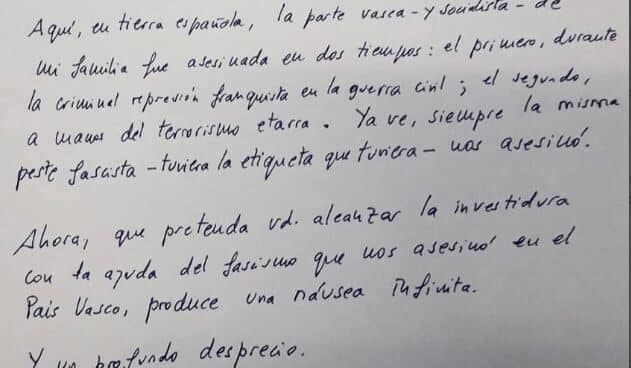 Aquí, en tierra española, la parte vasca - y socialista - de
mi familia fue asesinada en dos tiempos: el primero, durante
la criminal represión franquista en la guerra civil; el segundo,
a manos del terrorismo etarra. Ya ve, siempre la misma
peste fascista - tuviera la etiqueta que tuviera - nos asesinó.
Ahora, que pretenda vd. alcanzar la investidura
con la ayuda del fascismo que nos asesinó en el
País Vasco, produce una náusea infinita.
Y un profundo desprecio.